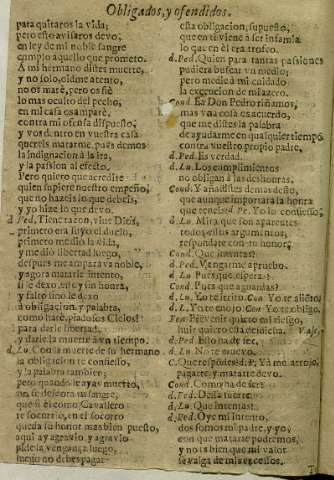 Obligados, y ofendidos.
para quitaros la vida;
pero esto avisaros devo,
en ley de mi noble sangre
cumplo aquello que prometo.
A mi hermano distes muerte,
y no solo, oidme atento,
no os maté, pero os fié
lo mas oculto del pecho,
en mi casa os amparé,
contra mi ofensa dispuesto,
y vos dentro en vuestra casa
quereis matarme, pues demos
la indignacion à la ira,
y la passion al efecto.
Pero quiero que acredite
quien supiere nuestro empeño,
que no hazeis lo que debeis,
y yo hize lo que devo.
d. Ped. Tienen razon, vive Dios,
primero era suyo el duelo,
primero medio la vida,
y me diò libertad luego,
despues me ampara va noble,
y agora matarle intento,
si le dexo, estoy sin honra,
y falto sino le dexo
a obligacion, y palabra,
como harè, piadosos Cielos!
para darle libertad,
y darle la muerte à vn tiempo.
d. Lu. Con la muerte de su hermano
la obligacion te confiesso,
y la palabra tambien;
pero quando le ayas muerto,
no se desdora tu sangre,
que si èl como Cavallero
te socorriò, en el socorro
queda su honor mas bien puesto,
aqui ay agravio, y agravio
pide la vengança luego,
luego no debes pagar
esta obligacion, supuesto,
que en ti viene à ser infamia
lo que en èl era trofeo.
d. Ped. Quien para tantas passiones
pudiera buscar vn medio;
pero medie à mi cuidado
la execucion de mi azero.
Cond. Ea Don Pedro riñamos,
mas vna cosa os acuerdo,
que me distes la palabra
de ayudarme en qualquier tiempo
contra vuestro propio padre.
d. Ped. Es verdad.
d. Lu. Los cumplimientos
no obligan à las deshonras.
Cond. Y añadistes demas desto,
que aunque importara la honra
que teneis. d. Pe. Yo lo confiesso.
d. Lu. Mira, que son aparentes
todos essos argumentos,
responda tu con tu honor.
Cond. Que intentas?
d. Ped. Vengarme apruebo.
d. Lu. Pues que esperas?
Cond. Pues que aguardas?
d. Lu. Yo te irrito. Con. Yo te aliento.
d. L. Yo te enojo. Con. Yo te obligo.
Ped. Prevenir quiero mi riesgo,
huir quiero esta desdicha. Vase.
d. Ped. Esto ha de ser.
d. Lu. No te muevo.
C. Que respondes? d. P. Yà me arrojo,
pagarte, y matarte devo.
Cond. Como ha de ser?
d. Ped. Desta suerte.
d. Lu. Que intentas?
d. Ped. Oye mi intento,
dos somos mi padre, y yo,
con que matarte podremos,
y no es bien que mi valor
se valga de mis excessos.